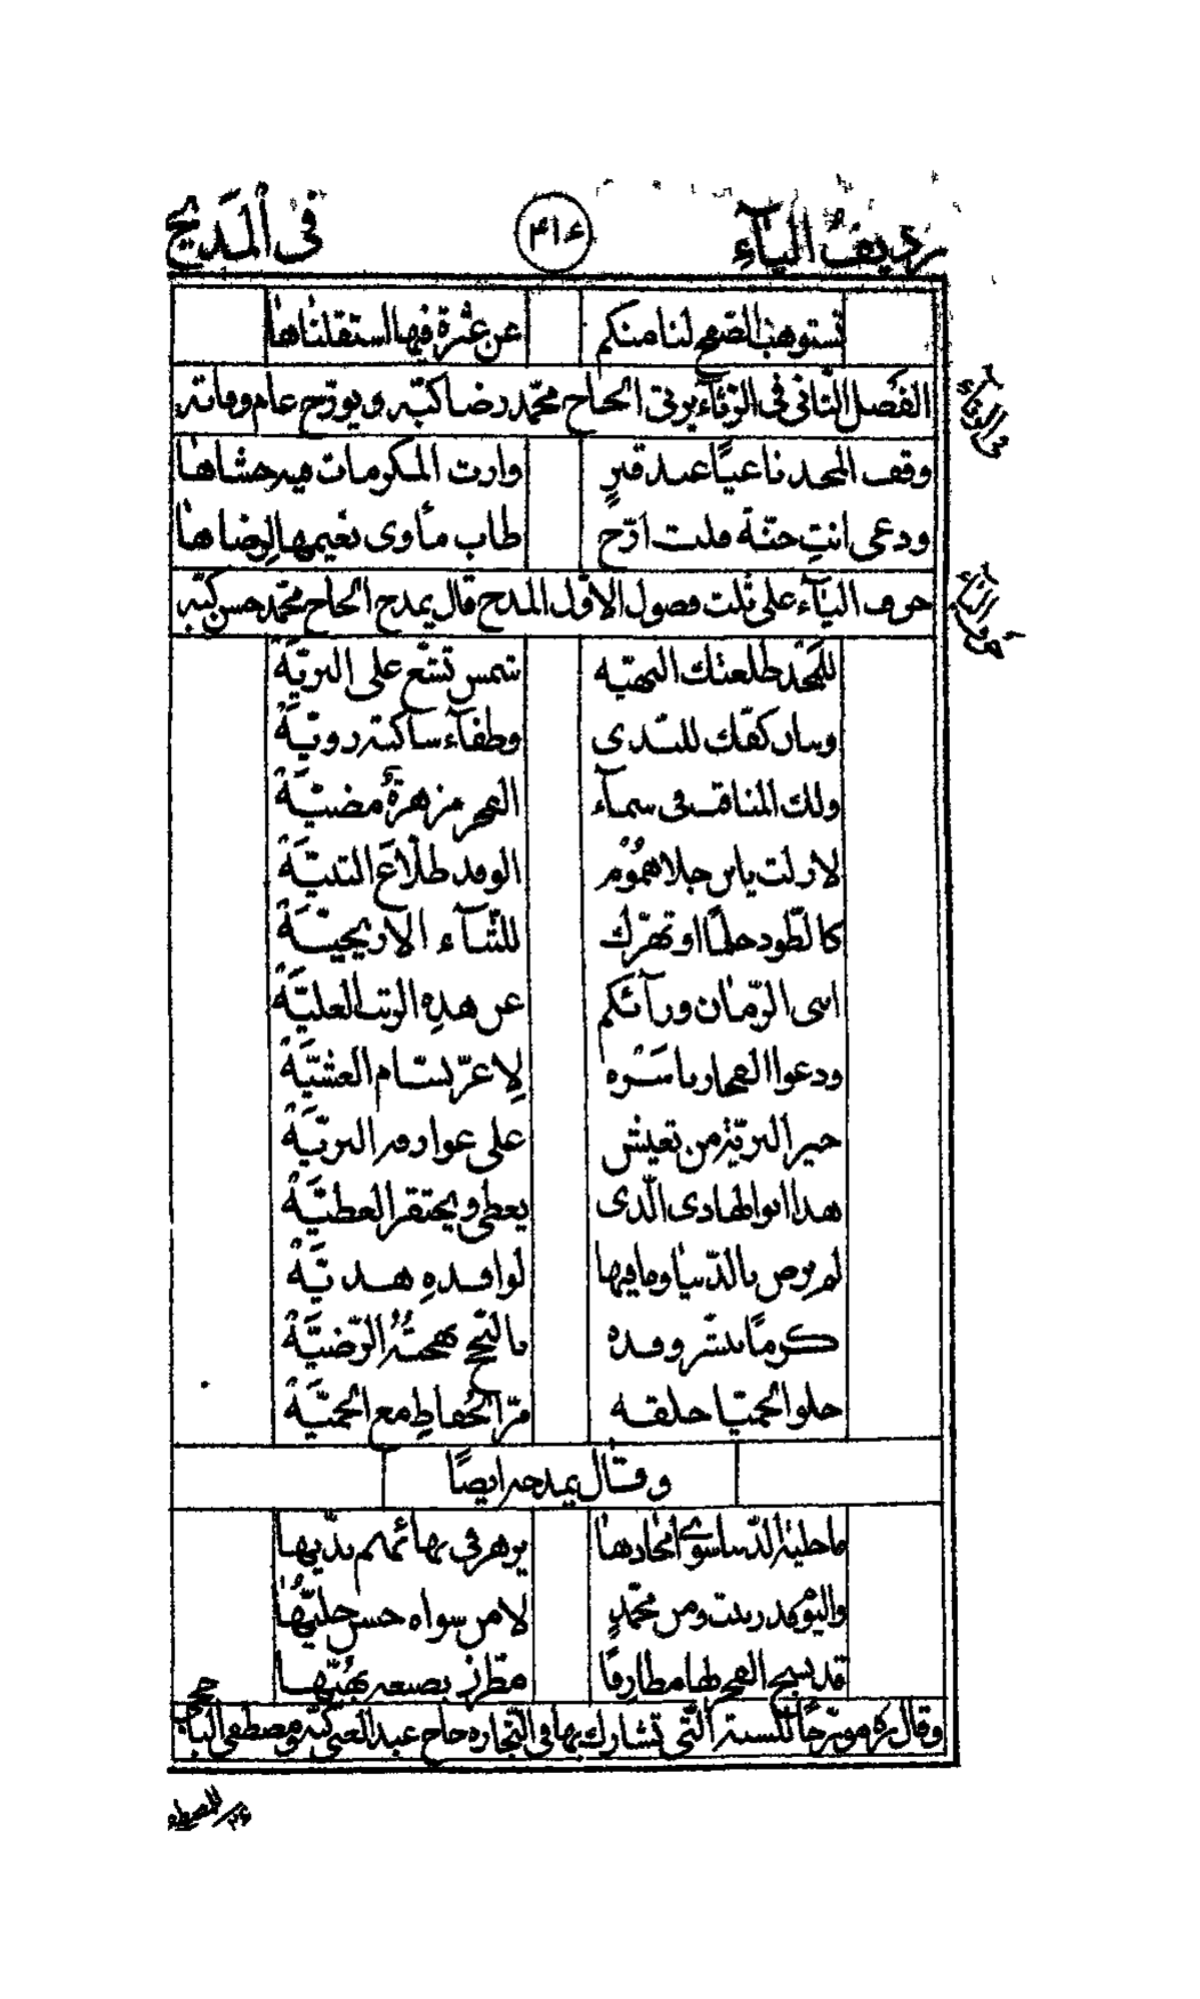 رديف اليآء ٤١٤ في المديح
تستوهب الصّفح لنا منكم عن عثرة فيها استقلناها
الفصل الثّاني في الرّثآء يرثي الحاج محمّد رضا كبّه و يورّخ عام وفاته
في الرثاء
وقف المجد ناعيًا عند قبرٍ وارت المكرمات فيه حشاها
ودعى انتِ جنّة قلت ارّخ طاب مأوى نعيمها لِرضاها
حرف اليآء على ثلث فصول الاوّل المدح قال يمدح الحاج محمّد حسن كبّه
حرف الياء
للمجد طلعتك البهيّه شمس تشعّ على البريّة
وسار كفّك للنّدى وطفآء ساكبته رويّة
ولك المناقب في سمآء الفخر مزهرة مضيّة
لازلت يابن جلا هموم الوفد طلّاع الثنيّة
كالطّود حلمًا او تهزّك للثّنآء الاريحيّة
اسى الزّمان ورآئكم عن هذهِ الرتب العليّة
ودعوا الفخار باسره لِاغرّ بسّام العشيّة
خير البريّة من تعيش على عوارفه البريّة
هذا ابو الهادي الّذي يعطي ويحتقر العطيّة
لم يرض بالدّنيا وما فيها لوافدهِ هديّة
كرمًا تبشّر وفده بالنّجح بهجتهُ الرّضيّة
حلو الحميّا خلقه مرّ الحفاظِ مع الحميّة
وقال يمدحه ايضًا
ما حلية الدّنيا سوى امجادها يزهر في بهائهم نديّها
واليوم قد زينت ومن محمّدٍ لا من سواه حسن حليّها
قد نسج الفخر لها مطارفًا مطرّز بصنعه بهيّها
وقال ره مورّخًا للسنة الّتي تشارك بها في التّجاره حاج عبد الغنى كبّه ومصطفى الباججي